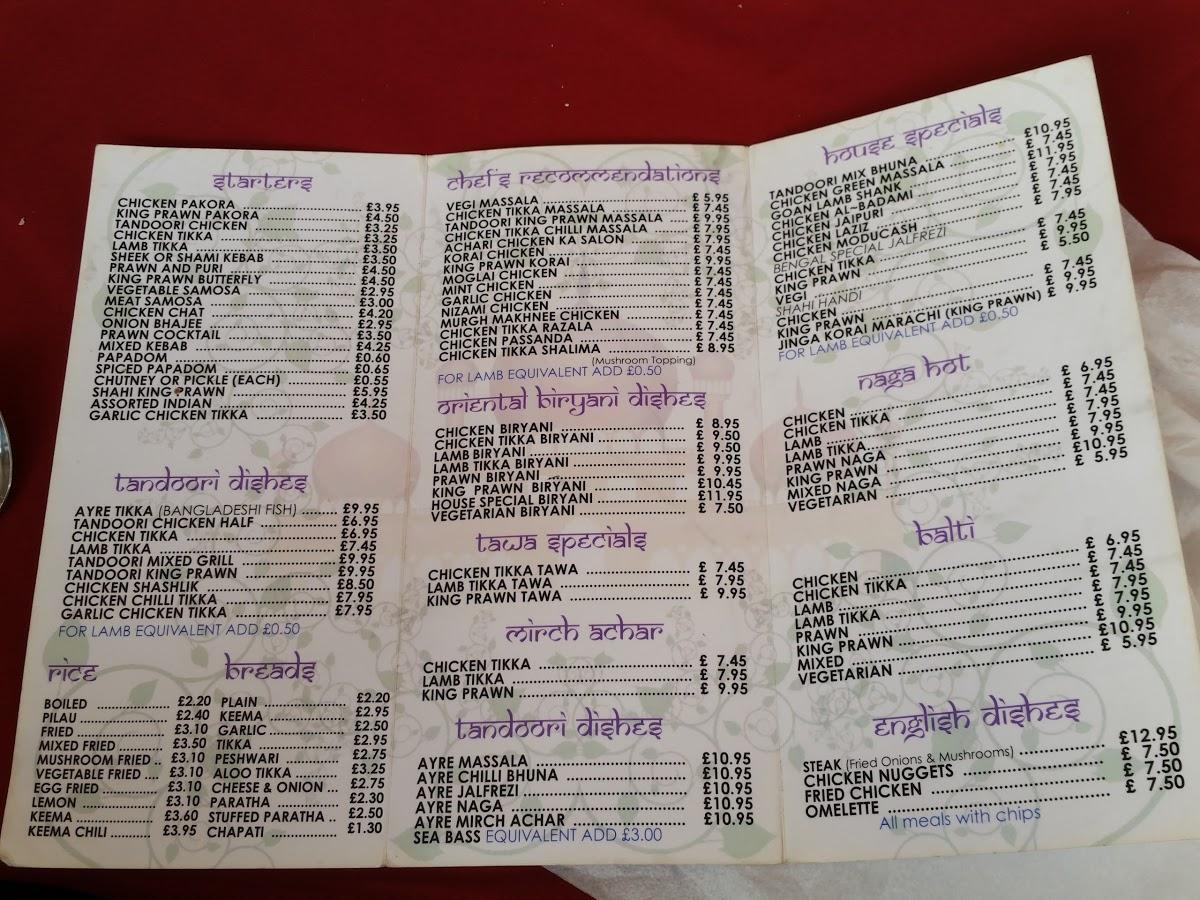 starters
CHICKEN PAKORA £3.95
KING PRAWN PAKORA £4.50
TANDOORI CHICKEN £3.25
CHICKEN TIKKA £3.25
LAMB TIKKA £3.50
SHEEK OR SHAMI KEBAB £3.50
PRAWN AND PURI £4.50
KING PRAWN BUTTERFLY £4.50
VEGETABLE SAMOSA £2.95
MEAT SAMOSA £3.00
CHICKEN CHAT £4.20
ONION BHAJEE £2.95
PRAWN COCKTAIL £3.50
MIXED KEBAB £4.25
PAPADOM £0.60
SPICED PAPADOM £0.65
CHUTNEY OR PICKLE (EACH) £0.55
SHAHI KING PRAWN £5.95
ASSORTED INDIAN £4.25
GARLIC CHICKEN TIKKA £3.50
tandoori dishes
AYRE TIKKA (BANGLADESHI FISH) £9.95
TANDOORI CHICKEN HALF £6.95
CHICKEN TIKKA £6.95
LAMB TIKKA £7.45
TANDOORI MIXED GRILL £9.95
TANDOORI KING PRAWN £9.95
CHICKEN SHASHLIK £8.50
CHICKEN CHILLI TIKKA £7.95
GARLIC CHICKEN TIKKA £7.95
FOR LAMB EQUIVALENT ADD £0.50
rice
BOILED £2.20
PILAU £2.40
FRIED £3.10
MIXED FRIED £3.50
MUSHROOM FRIED £3.10
VEGETABLE FRIED £3.10
EGG FRIED £3.10
LEMON £3.10
KEEMA £3.60
KEEMA CHILI £3.95
breads
PLAIN £2.20
KEEMA £2.95
GARLIC £2.50
TIKKA £2.95
PESHWARI £2.75
ALOO TIKKA £3.25
CHEESE & ONION £2.75
PARATHA £2.30
STUFFED PARATHA £2.50
CHAPATI £1.30
chef's recommendations
VEGI MASSALA £ 5.95
CHICKEN TIKKA MASSALA £ 7.45
TANDOORI KING PRAWN MASSALA £ 9.95
CHICKEN TIKKA CHILLI MASSALA £ 7.95
ACHARI CHICKEN KA SALON £ 7.95
KORAI CHICKEN £ 7.45
KING PRAWN KORAI £ 9.95
MOGLAI CHICKEN £ 7.45
MINT CHICKEN £ 7.45
GARLIC CHICKEN £ 7.45
NIZAMI CHICKEN £ 7.45
MURGH MAKHNEE CHICKEN £ 7.45
CHICKEN TIKKA RAZALA £ 7.45
CHICKEN PASSANDA £ 7.45
CHICKEN TIKKA SHALIMA £ 8.95
(Mushroom Topping)
FOR LAMB EQUIVALENT ADD £0.50
oriental biryani dishes
CHICKEN BIRYANI £ 8.95
CHICKEN TIKKA BIRYANI £ 9.50
LAMB BIRYANI £ 9.50
LAMB TIKKA BIRYANI £ 9.95
PRAWN BIRYANI £ 9.95
KING PRAWN BIRYANI £10.45
HOUSE SPECIAL BIRYANI £11.95
VEGETARIAN BIRYANI £ 7.50
tawa specials
CHICKEN TIKKA TAWA £ 7.45
LAMB TIKKA TAWA £ 7.95
KING PRAWN TAWA £ 9.95
mirch achar
CHICKEN TIKKA £ 7.45
LAMB TIKKA £ 7.95
KING PRAWN £ 9.95
tandoori dishes
AYRE MASSALA £10.95
AYRE CHILLI BHUNA £10.95
AYRE JALFREZI £10.95
AYRE NAGA £10.95
AYRE MIRCH ACHAR £10.95
SEA BASS EQUIVALENT ADD £3.00
house specials
TANDOORI MIX BHUNA £10.95
CHICKEN GREEN MASSALA £ 7.45
GOAN LAMB SHANK £11.95
CHICKEN AL-BADAMI £ 7.95
CHICKEN JAIPURI £ 7.45
CHICKEN LAZIZ £ 7.45
CHICKEN MODUCASH £ 7.95
BENGAL SPECIAL JALFREZI
CHICKEN TIKKA £ 7.45
KING PRAWN £ 9.95
VEGI £ 5.50
SHAHI HANDI
CHICKEN £ 7.45
KING PRAWN £ 9.95
JINGA KORAI MARACHI (KING PRAWN) £ 9.95
FOR LAMB EQUIVALENT ADD £0.50
naga hot
CHICKEN £ 6.95
CHICKEN TIKKA £ 7.45
LAMB £ 7.45
LAMB TIKKA £ 7.95
PRAWN NAGA £ 7.95
KING PRAWN £ 9.95
MIXED NAGA £10.95
VEGETARIAN £ 5.95
balti
CHICKEN £ 6.95
CHICKEN TIKKA £ 7.45
LAMB £ 7.45
LAMB TIKKA £ 7.95
PRAWN £ 7.95
KING PRAWN £ 9.95
MIXED £10.95
VEGETARIAN £ 5.95
english dishes
STEAK (Fried Onions & Mushrooms) £12.95
CHICKEN NUGGETS £ 7.50
FRIED CHICKEN £ 7.50
OMELETTE £ 7.50
All meals with chips